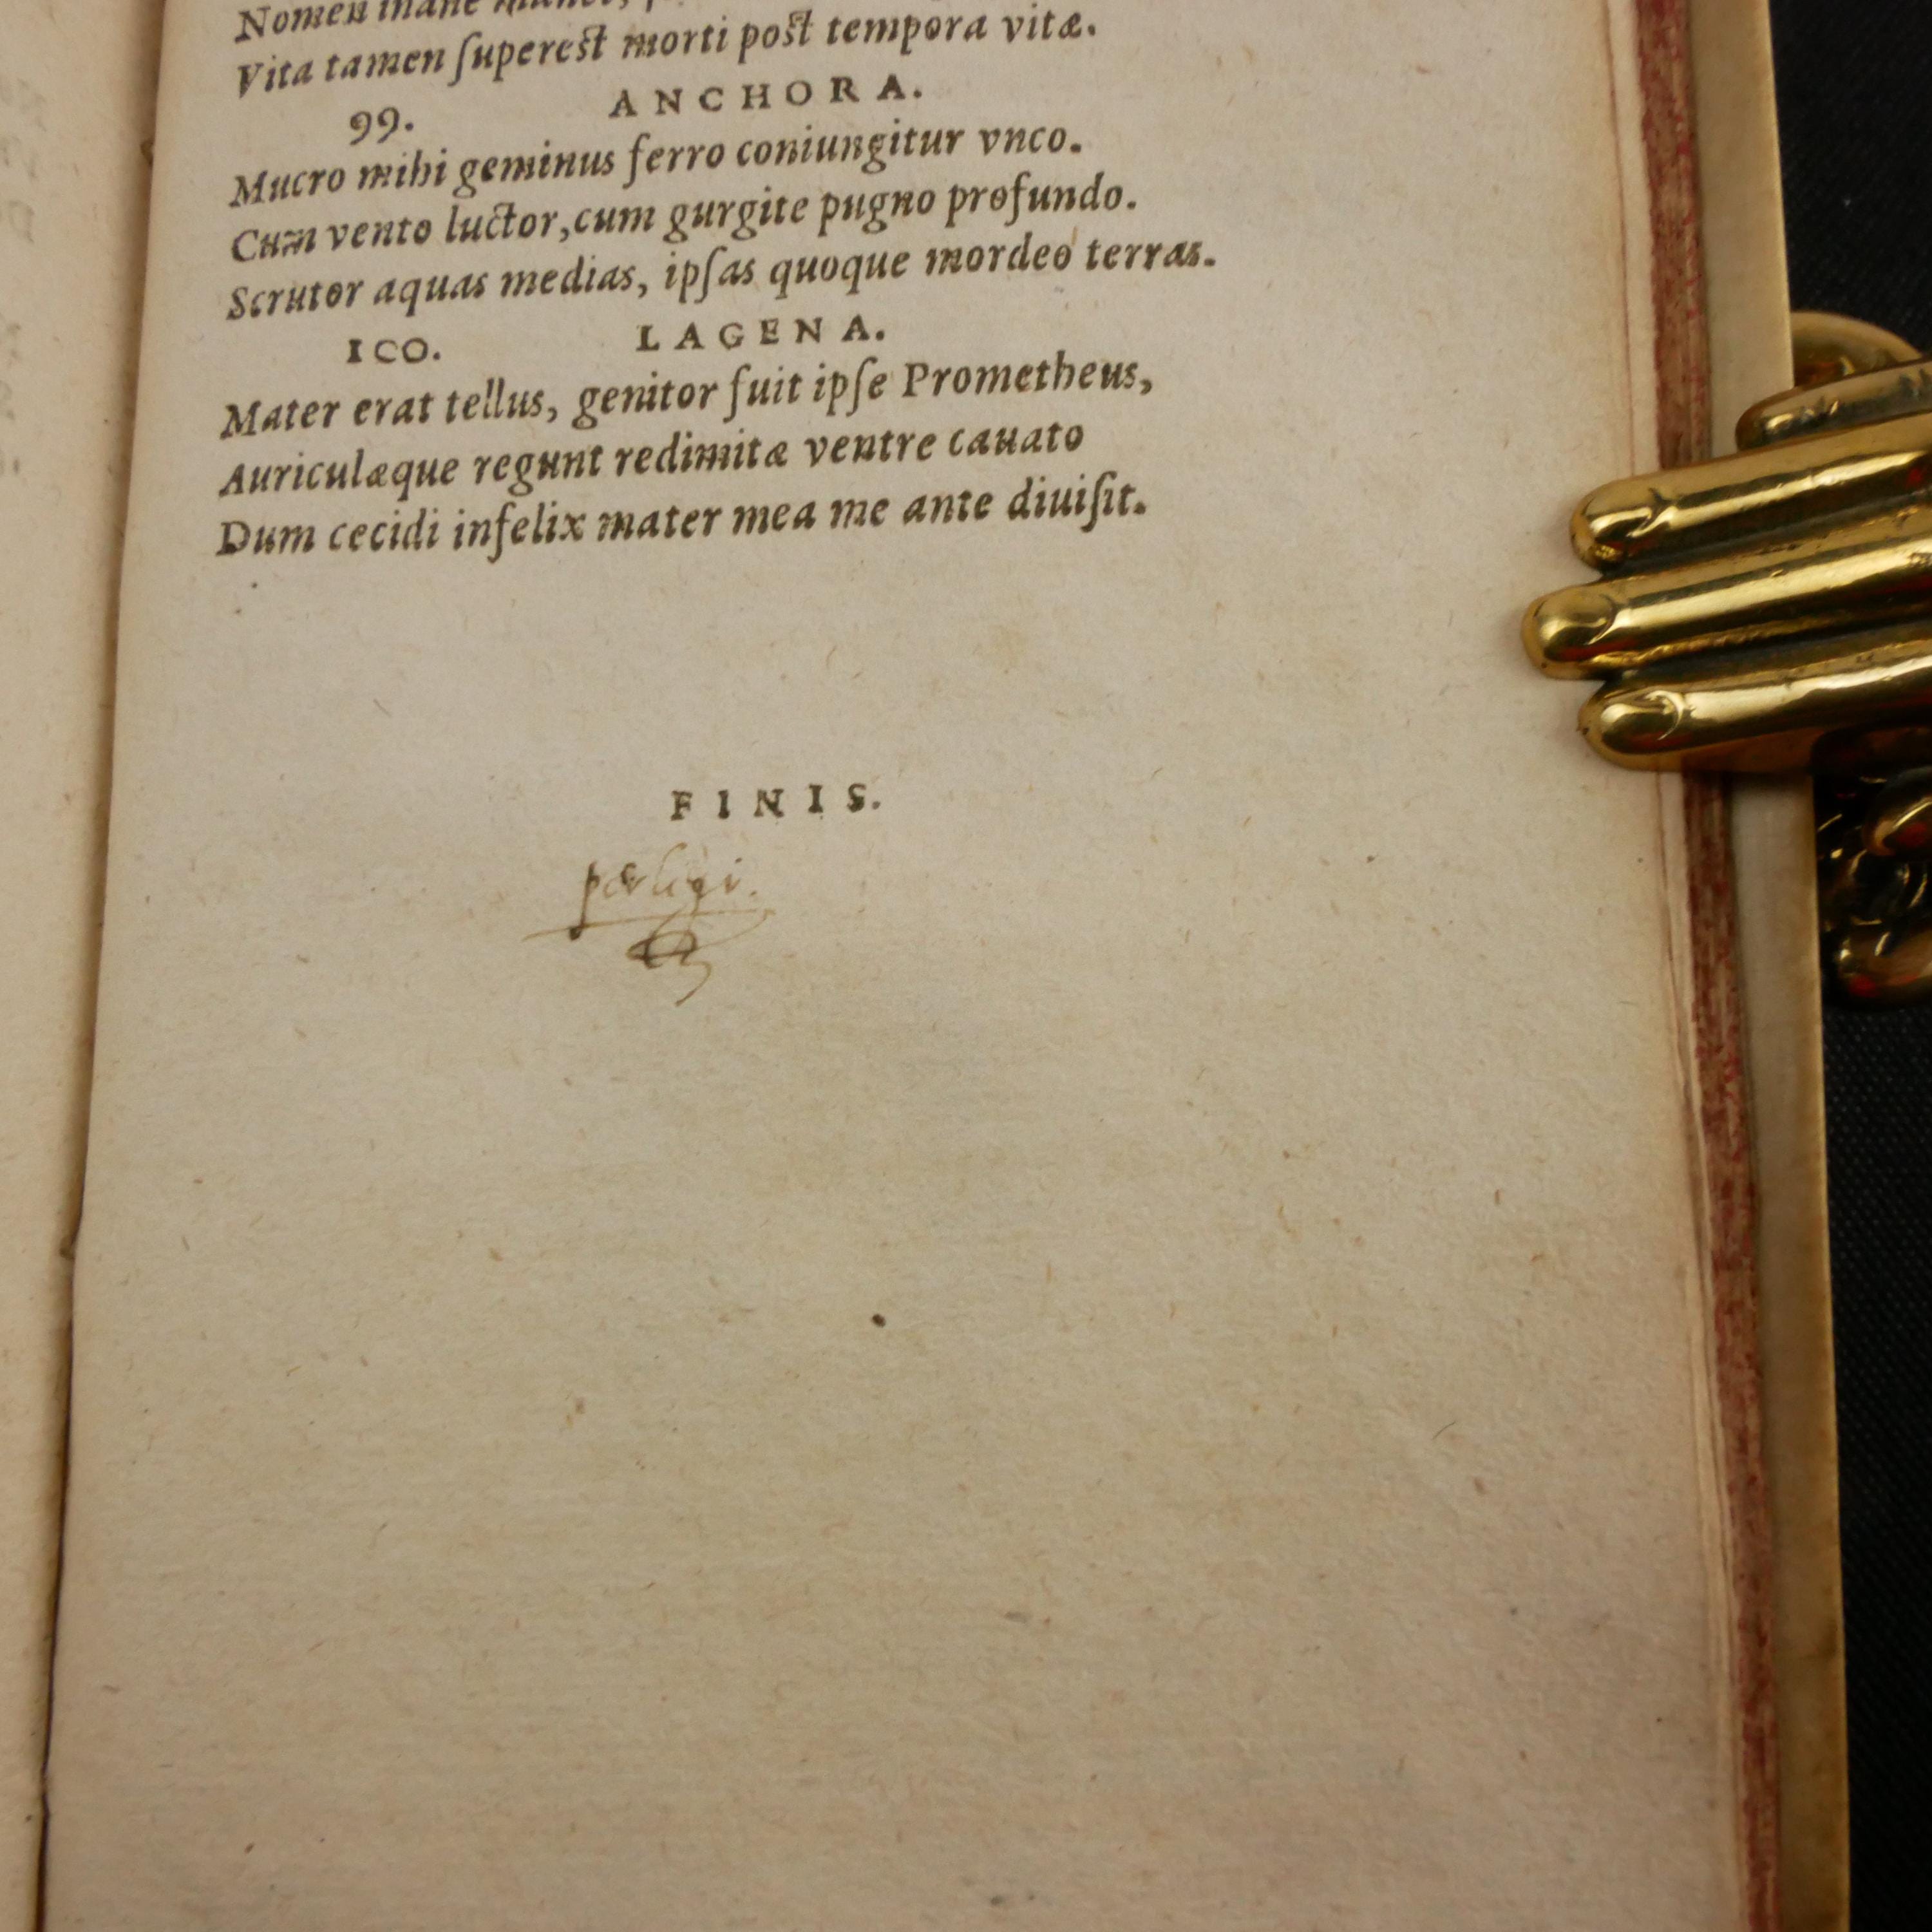 Nomen inane
Vita tamen ſupereſt morti poſt tempora vitæ.
99. ANCHORA.
Mucro mihi geminus ferro coniungitur vnco.
Cum vento luctor, cum gurgite pugno profundo.
Scrutor aquas medias, ipſas quoque mordeo terras.
ICO. LAGENA.
Mater erat tellus, genitor fuit ipſe Prometheus,
Auriculæque regunt redimitæ ventre cauato
Dum cecidi infelix mater mea me ante diuiſit.
FINIS.
perlegi.